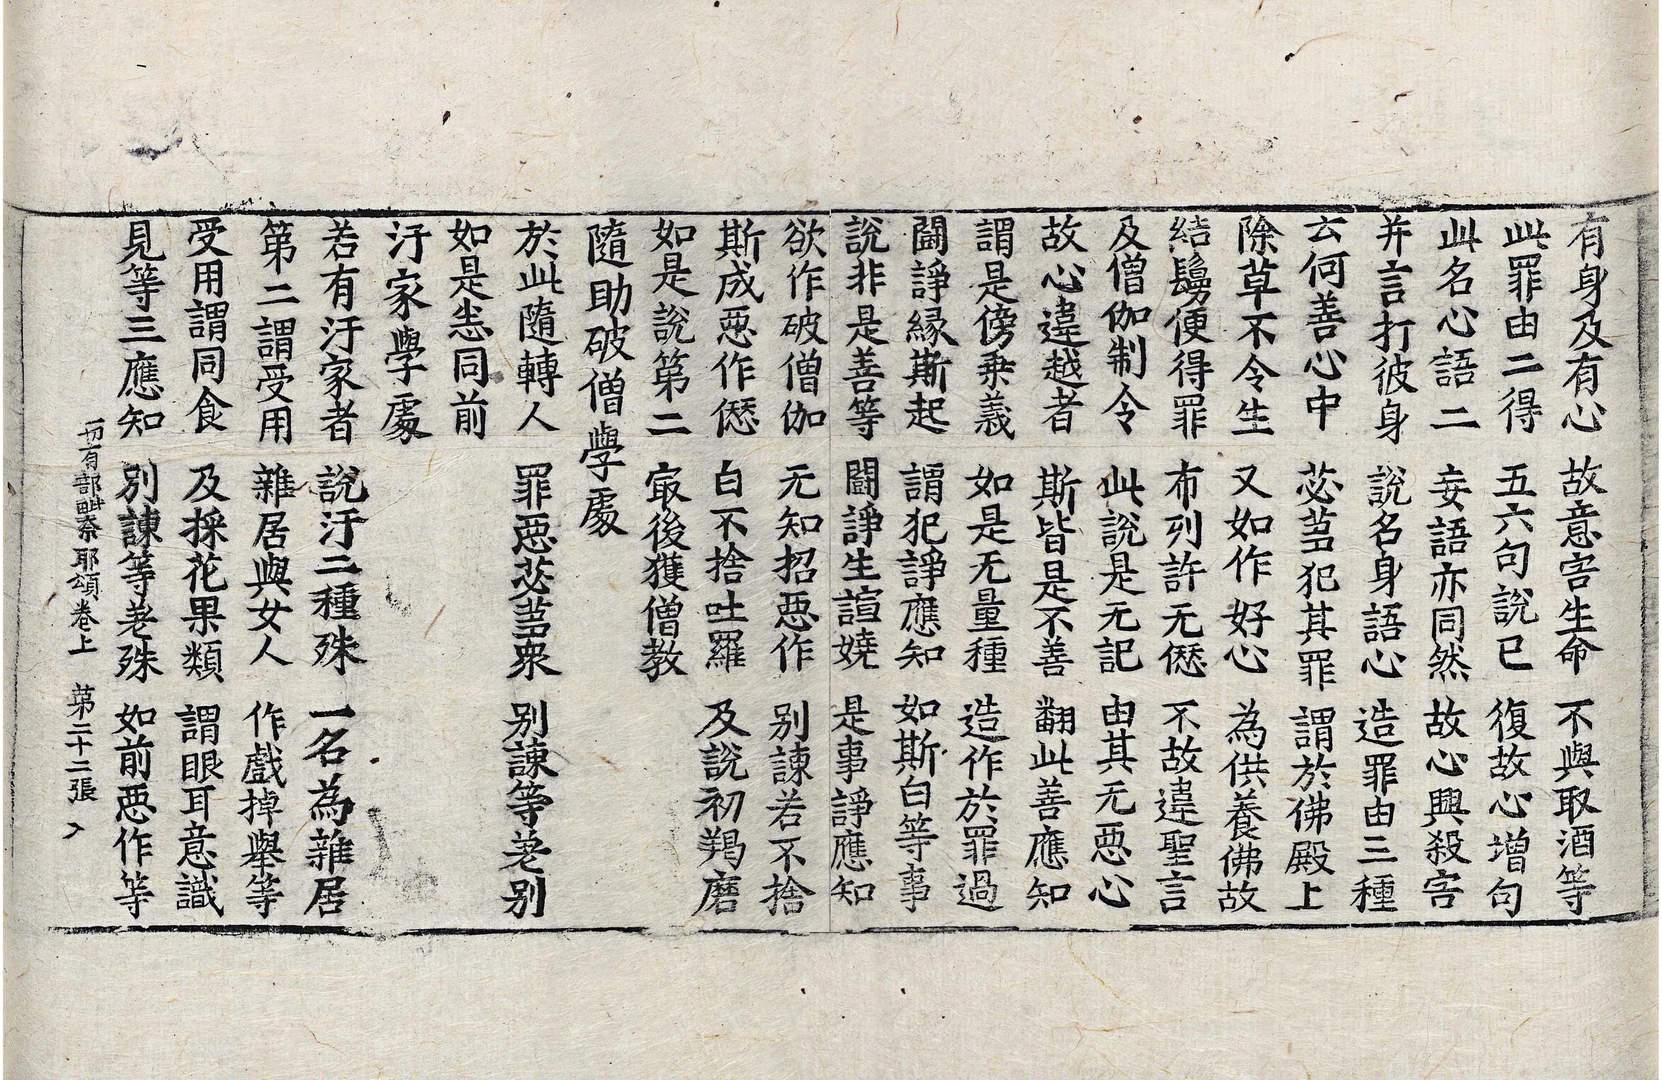 有身及有心　故意害生命　不與取酒等
此罪由二得　五六句說已　復故心增句
此名心語二　妄語亦同然　故心興殺害
并言打彼身　說名身語心　造罪由三種
云何善心中　苾芻犯其罪　謂於佛殿上
除草不令生　又如作好心　為供養佛故
結鬘便得罪　布列許无愆　不故違聖言
及僧伽制令　此說是无記　由其无惡心
故心違越者　斯皆是不善　翻此善應知
謂是傍乘義　如是无量種　造作於罪過
鬪諍緣斯起　謂犯諍應知　如斯白等事
說非是善等　鬪諍生諠嬈　是事諍應知
欲作破僧伽　无知招惡作　別諫若不捨
斯成惡作愆　白不捨吐羅　及說初羯磨
如是說第二　㝡後獲僧教
隨助破僧學處
於此隨轉人　罪惡苾芻眾　別諫等差别
如是恙同前
汙家學處
若有汙家者　說汙二種殊　一名為雜居
第二謂受用　雜居與女人　作戲掉舉等
受用謂同食　及採花果類　謂眼耳意識
見等三應知　別諫等差殊　如前惡作等
一切有部毗奈耶頌卷上　第二十二張　入